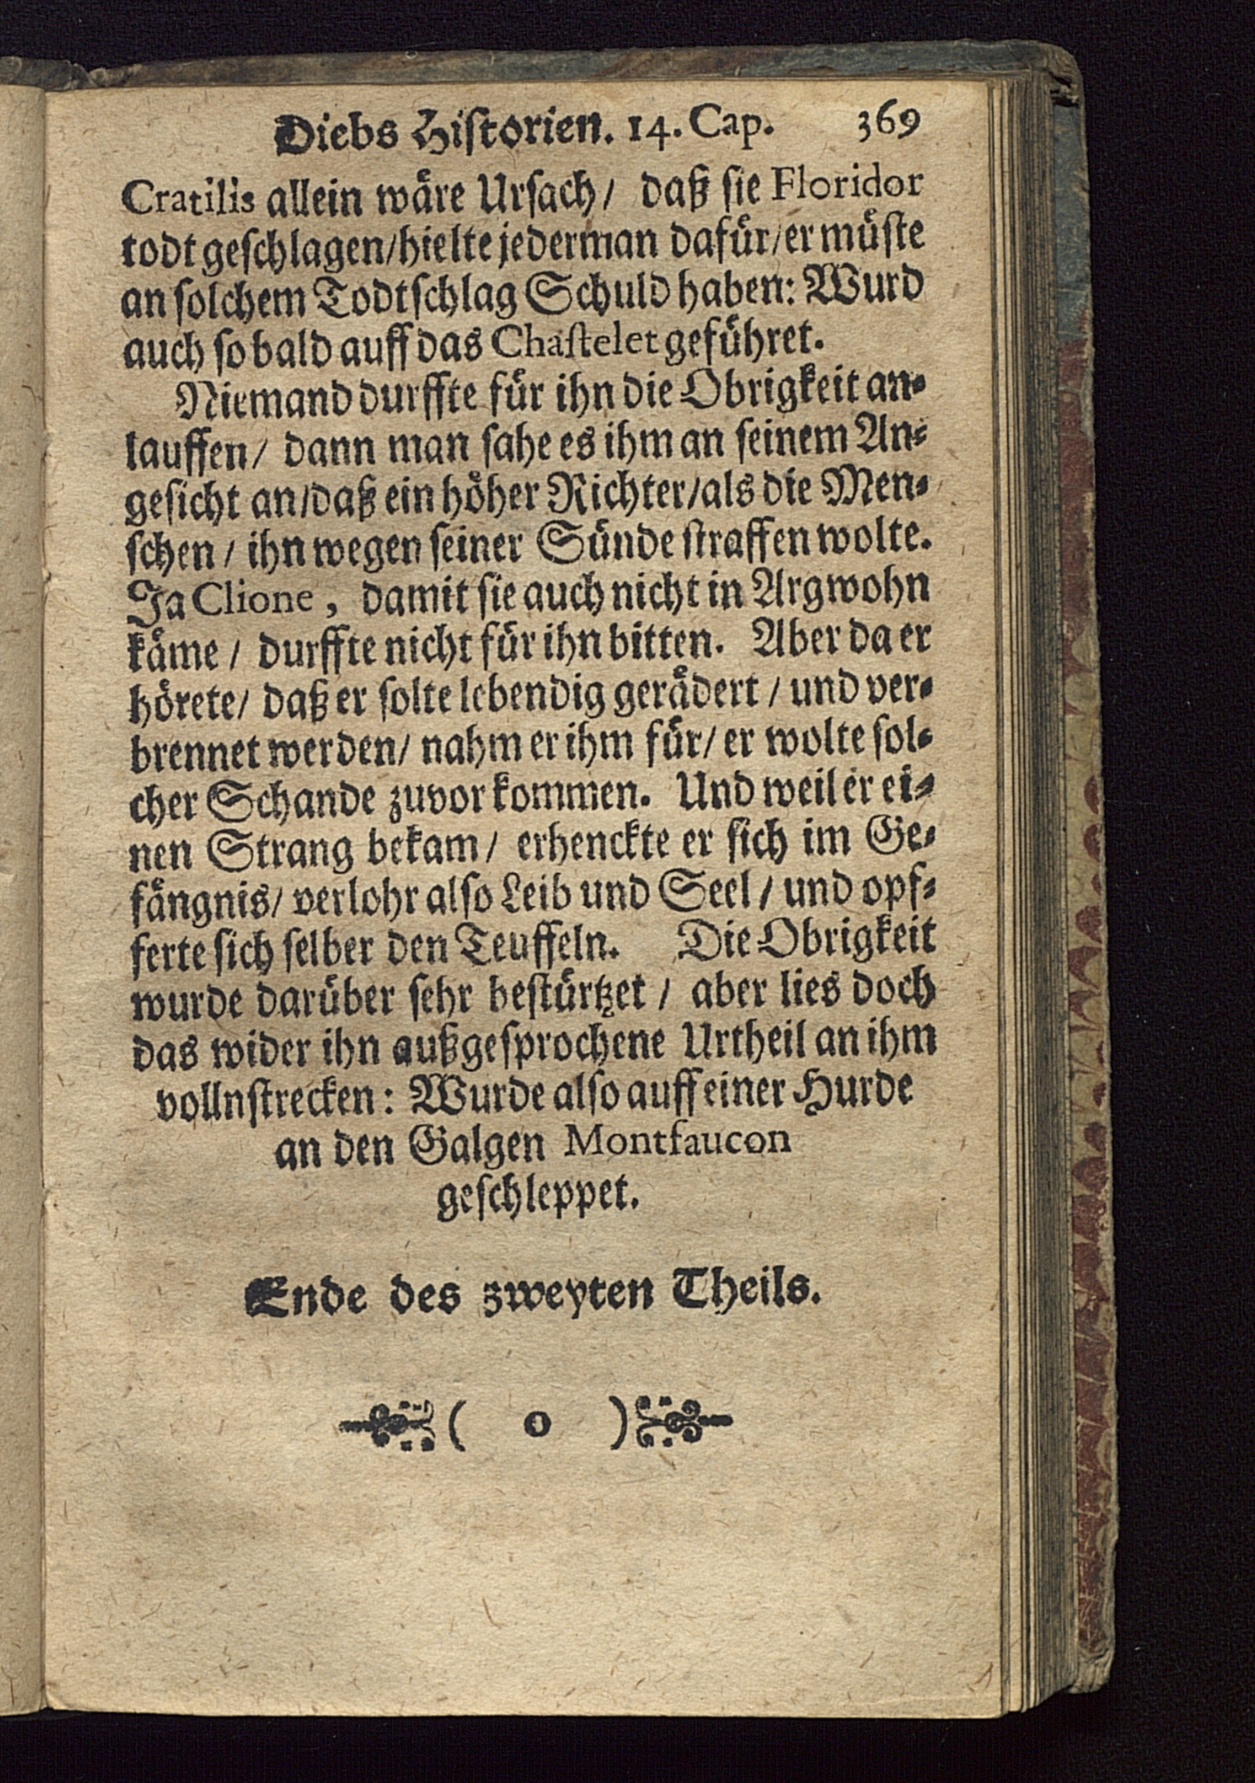 Diebs Historien. 14. Cap. 369
Cratilis allein wäre Ursach/ daß sie Floridor
todt geschlagen/hielte jederman dafür/er müste
an solchem Todtschlag Schuld haben: Wurd
auch so bald auff das Chastelet geführet.
Niemand durffte für ihn die Obrigkeit an-
lauffen/ dann man sahe es ihm an seinem An-
gesicht an/daß ein höher Richter/als die Men-
schen/ ihn wegen seiner Sünde straffen wolte.
Ja Clione, damit sie auch nicht in Argwohn
käme/ durffte nicht für ihn bitten. Aber da er
hörete/ daß er solte lebendig gerädert/ und ver-
brennet werden/ nahm er ihm für/ er wolte sol-
cher Schande zuvor kommen. Und weil er ei-
nen Strang bekam/ erhenckte er sich im Ge-
fängnis/ verlohr also Leib und Seel/ und opf-
ferte sich selber den Teuffeln. Die Obrigkeit
wurde darüber sehr bestürtzet/ aber lies doch
das wider ihn außgesprochene Urtheil an ihm
vollnstrecken: Wurde also auff einer Hurde
an den Galgen Montfaucon
geschleppet.
Ende des zweyten Theils.
( o )